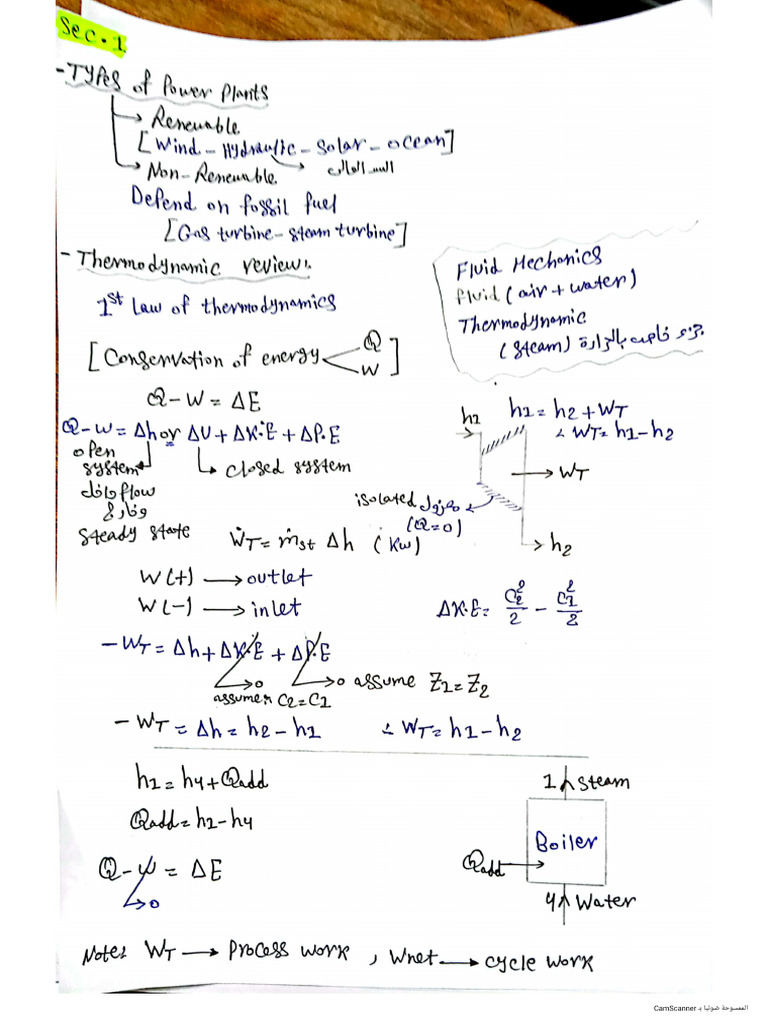 Sec.1
- Types of Power Plants
→ Renewable
[Wind - Hydraulic - Solar - Ocean]
السد العالى
→ Non-Renewable
Defend on fossil fuel
[Gas turbine - steam turbine]
- Thermodynamic review:
Fluid Mechanics
fluid (air + water)
Thermodynamic
(steam) جزء خاص بالحرارة
1st Law of thermodynamics
[Conservation of energy < Q W]
Q - W = ΔE
Q - W = Δh or ΔU + ΔK.E + ΔP.E
open system
closed system
flow داخل
وخارج
steady state
h1
h1 = h2 + WT
∴ WT = h1 - h2
→ WT
isolated معزول
(Q=0)
→ h2
ẆT = ṁst Δh (Kw)
W(+) → outlet
W(-) → inlet
ΔK.E = C2²/2 - C1²/2
- WT = Δh + ΔK.E + ΔP.E
→ 0
→ 0 assume Z1 = Z2
assume C2 = C1
- WT = Δh = h2 - h1
∴ WT = h1 - h2
h1 = h4 + Qadd
Qadd = h1 - h4
Q - W = ΔE
→ 0
1 steam
Boiler
Qadd →
4 Water
Note: WT → Process work, Wnet → cycle work
الممسوحة ضوئيا بـ CamScanner